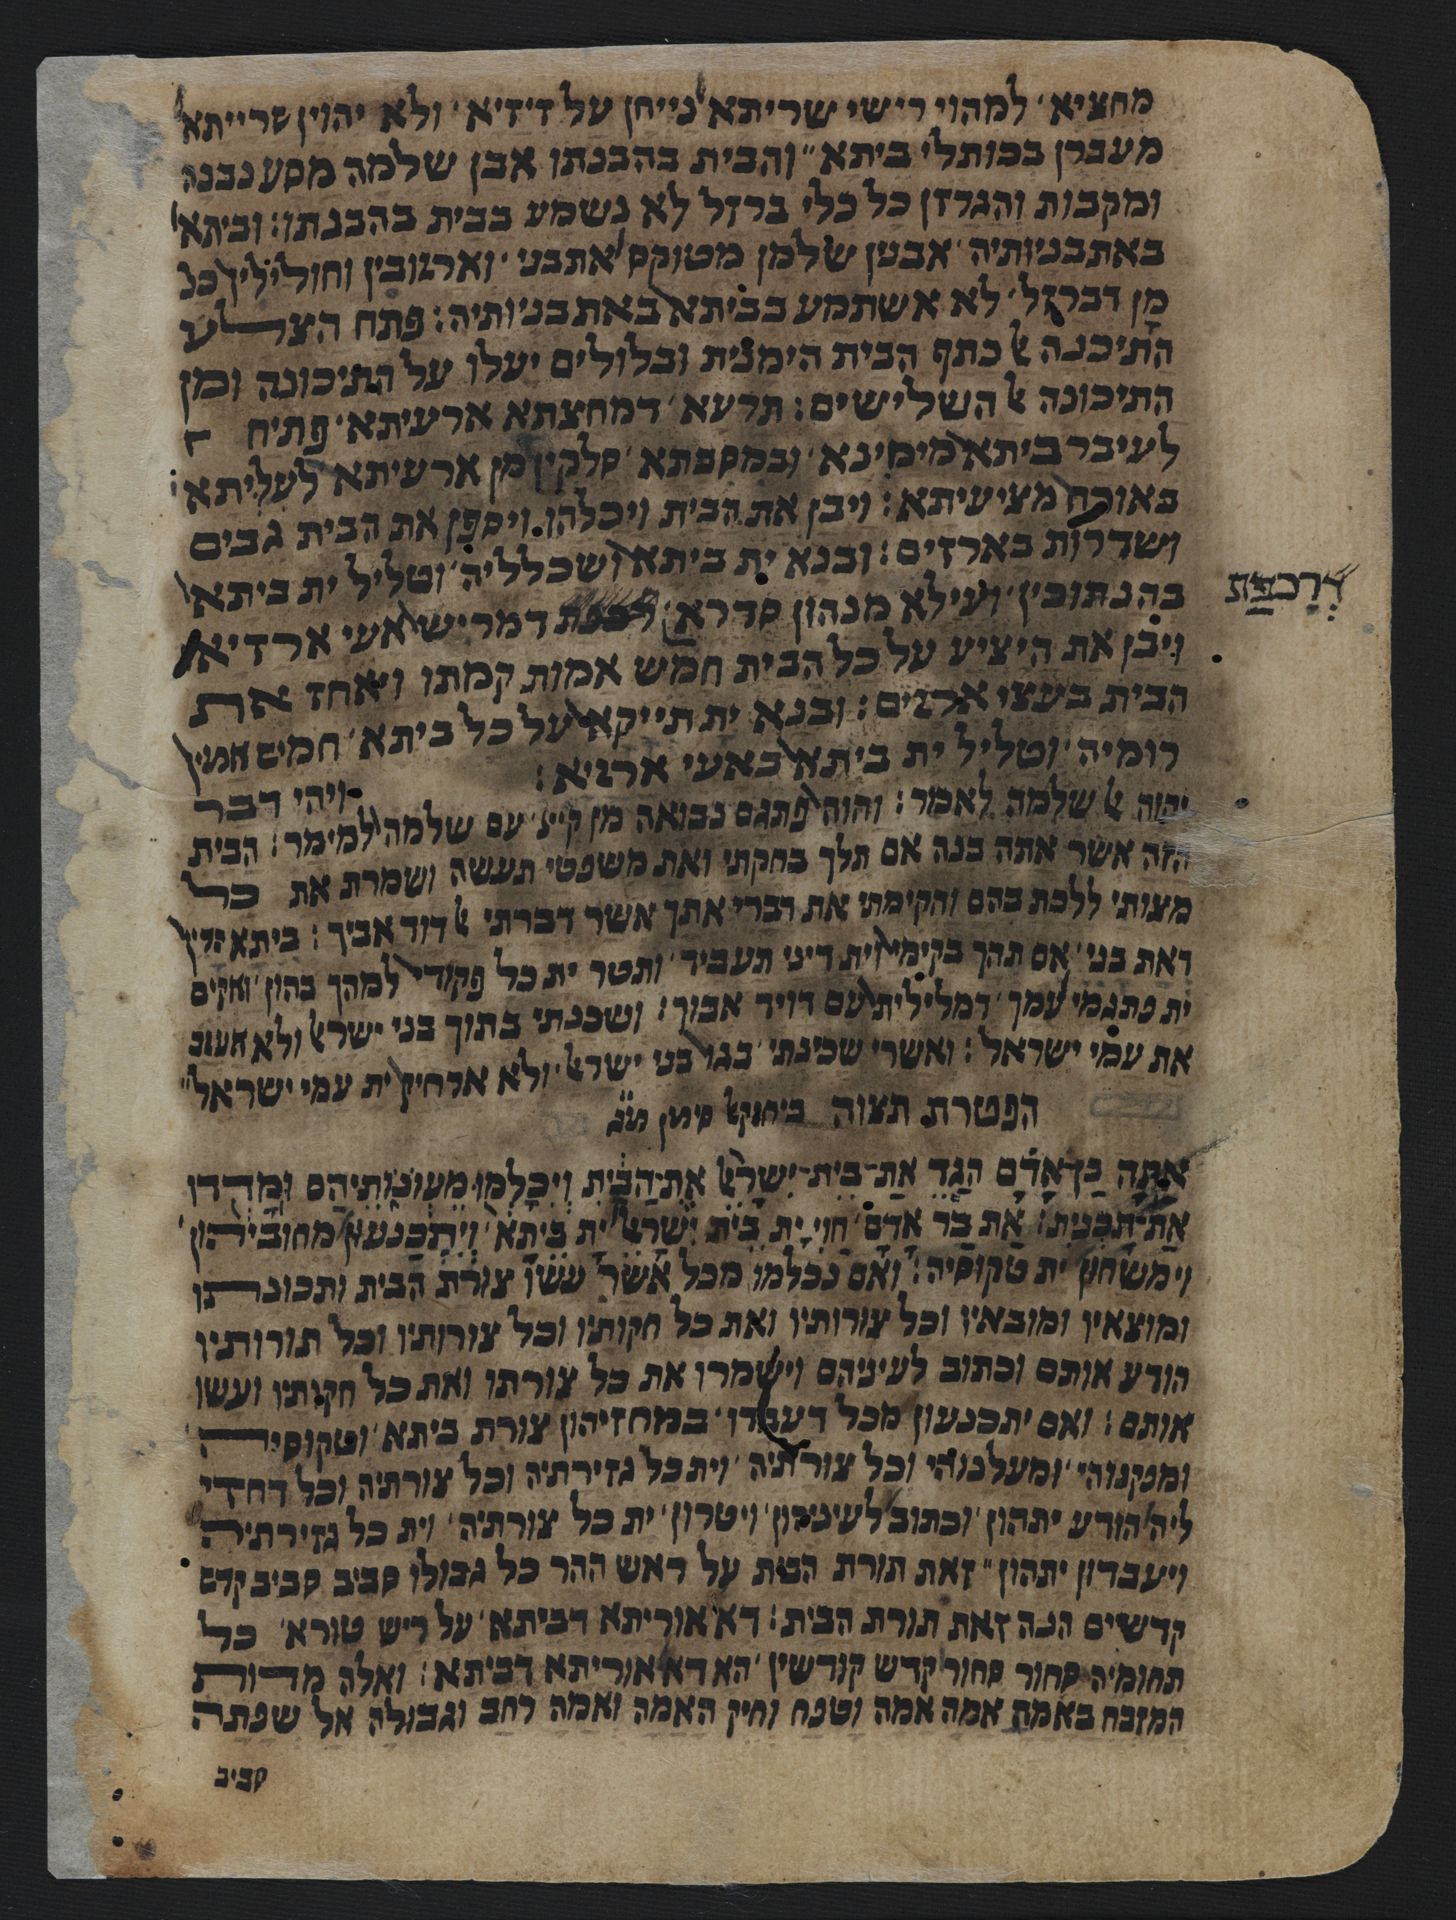 מחציא׳ למהוי רישי שריתא נייחן על זיזיא׳ ולא יהוין שרייתא
מעברן בכותלי ביתא״ והבית בהבנתו אבן שלמה מסע נבנה
ומקבות והגרזן כל כלי ברזל לא נשמע בבית בהבנתו: וביתא
באתבניותיה׳ אבנין שלמן מטוקס אתבני׳ וארזובין וחולילין כל
מן דברזל׳ לא אשתמע בביתא באתבניותיה: פתח הצלע
התיכנה אל כתף הבית הימנית ובלולים יעלו על התיכונה ומן
התיכונה אל השלישים: תרעא׳ דמחצתא ארעיתא׳ פתיח
לעיבר ביתא מימינא׳ ובמסבתא׳ סלקין מן ארעיתא לעליתא
באורח מציעיתא: ויבן את הבית ויכלהו ויספן את הבית גבים
ושדרות בארזים: ובנא ית ביתא ושכלליה׳ וטליל ית ביתא
דרכפת
בהנתובין׳ ועילא מנהון סדרא דמריש אעי ארזיא
ויבן את היציע על כל הבית חמש אמות קמתו ויאחז את
הבית בעצי ארזים: ובנא ית תייקא על כל ביתא׳ חמיש אמין
רומיה׳ וטליל ית ביתא באעי ארזיא:
ויהי דבר
יהוה אל שלמה לאמר: והוה פתגם נבואה מן קיי׳ עם שלמה למימר: הבית
הזה אשר אתה בנה אם תלך בחקתי ואת משפטי תעשה ושמרת את כל
מצותי ללכת בהם והקימתי את דברי אתך אשר דברתי אל דוד אביך: ביתא הדין
דאת בני׳ אם תהך בקימי וית דיני תעביד׳ ותטר ית כל פקודי למהך בהון׳ ואקים
ית פתגמי עמך׳ דמלילית עם דויד אבוך: ושכנתי בתוך בני ישראל ולא אעזב
את עמי ישראל: ואשרי שכינתי׳ בגו בני ישראל׳ ולא ארחיק ית עמי ישראל״
הפטרת תצוה ביחזקאל סימן מ״ג
אַתָּה בֶן אָדָם הַגֵּד אֶת־בֵּית־יִשְׂרָאֵל אֶת־הַבַּיִת וְיִכָּלְמוּ מֵעֲוֹנוֹתֵיהֶם וּמָדְדוּ
אֶת־תָּכְנִית: אַת בַּר אָדָם׳ חַוִי יָת בֵּית יִשְׂרָאֵל יָת בֵּיתָא׳ וְיִתְכַּנְעוּן מחוביהון׳
וימשחון ית טקוסיה: ואם נכלמו מכל אשר עשו צורת הבית ותכונתו
ומוצאיו ומובאיו וכל צורותיו ואת כל חקותיו וכל צורותיו וכל תורותיו
הודע אותם וכתוב לעיניהם וישמרו את כל צורתו ואת כל חקותיו ועשו
אותם: ואם יתכנעון מכל דעבדו׳ במחזיהון צורת ביתא׳ וטקוסיה
ומפקנוהי׳ ומעלנוהי וכל צורתיה׳ וית כל גזירתיה וכל צורתיה וכל דחזי
ליה הודע יתהון׳ וכתוב לעיניהון׳ ויטרון׳ ית כל צורתיה׳ וית כל גזירתיה
ויעבדון יתהון״ זאת תורת הבית על ראש ההר כל גבולו סביב סביב קדש
קדשים הנה זאת תורת הבית: דא אוריתא דביתא׳ על ריש טורא׳ כל
תחומיה סחור סחור קדש קודשין׳ הא דא אוריתא דביתא: ואלה מדות
המזבח באמה אמה אמה וטפח וחיק האמה ואמה רחב וגבולה אל שפתה
סביב